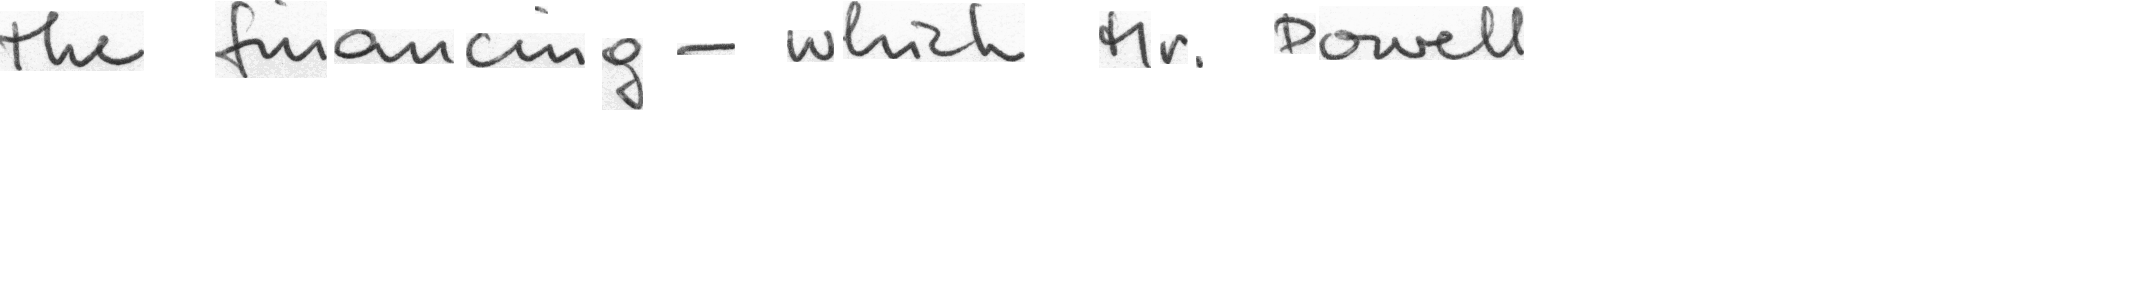 the financing – which Mr. Powell